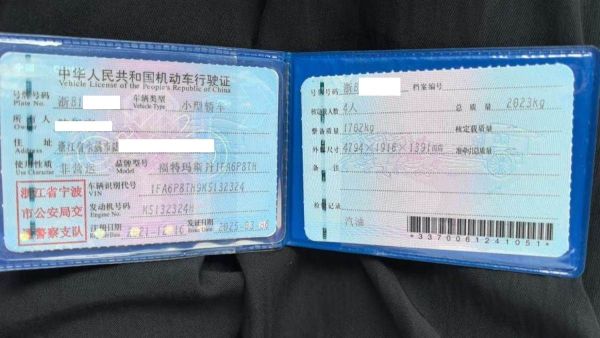 中华人民共和国机动车行驶证
Vehicle License of the People's Republic of China
号牌号码 浙B 车辆类型 小型轿车
Plate No. Vehicle Type
所有人
Owner
住址
Address
使用性质 非营运 品牌型号 福特玛斯丹1FA6P8TH
Use Character Model
浙江省宁波市公安局交通警察支队
车辆识别代号 1FA6P8TH9K5132324
VIN
发动机号码 K5132324H
Engine No.
注册日期 2021-12-16 发证日期 2025-03-06
Register Date Issue Date
号牌号码 浙B 档案编号
核定载人数 4人 总质量 2023Kg
整备质量 1702Kg 核定载质量
外廓尺寸 4794×1916×1391mm 准牵引总质量
备注
检验记录
汽油
*3370061241051*